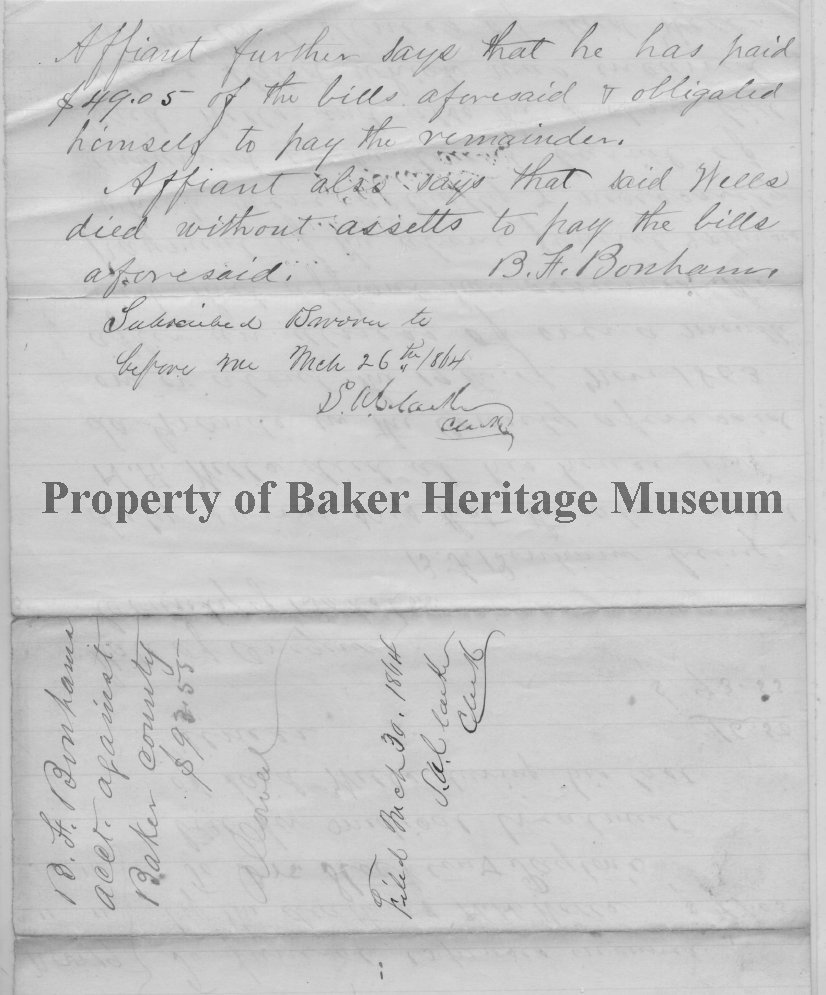 Affiant further says that he has paid
$49.05 of the bills aforesaid & obligated
himself to pay the remainder.
Affiant also says that said Wells
died without assetts to pay the bills
aforesaid. B. F. Bonham.
Subscribed & sworn to
before me Mch 26th 1864
S. A. Clarke
Clerk
Property of Baker Heritage Museum
B. F. Bonham's
acct. against
Baker County
$93.55
Allowed
Filed Mch 30, 1864
S. A. Clarke
Clerk